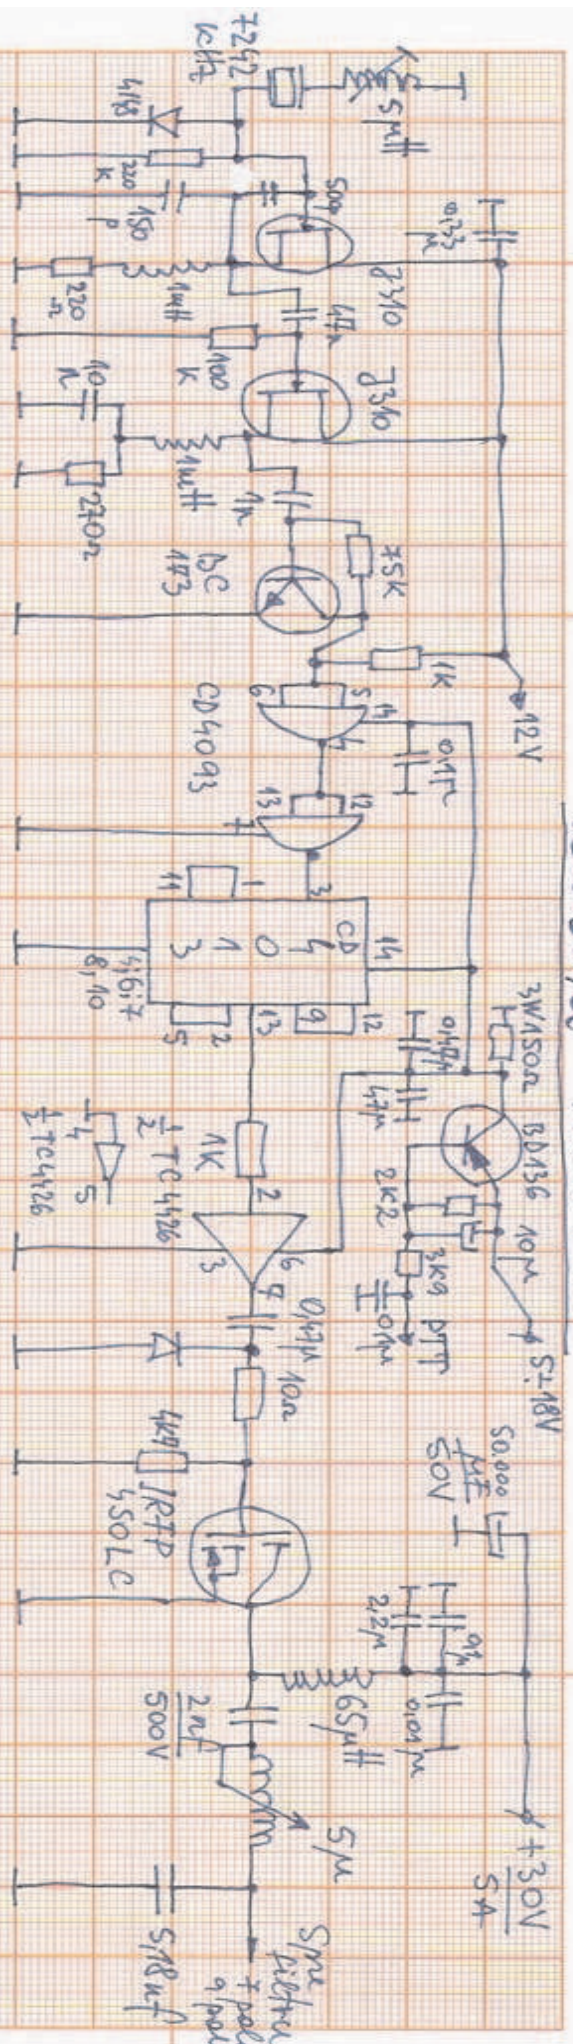 7242
kHz
5µH
4148
220
K
150
P
500
0,33
µ
J310
220
Ω
1mH
47n
100
K
J310
10
n
1mH
270Ω
1n
75K
BC
173
1K
12V
CD4093
6
5
14
4
0,1µ
13
12
7
3
11
1
CD
4
0
1
3
14
4,6,7
8,10
5
2
13
9
12
3W150Ω
0,47µ
47µ
BD136
2K2
10µ
3K9
0,1µ
PTT
5÷18V
1K
2
½ TC4426
4
5
½ TC4426
3
6
7
0,47µ
10Ω
4K7
IRFP
450LC
50.000
µF
50V
2,2µ
0,01µ
65µH
2nF
500V
5µ
+30V
5A
5,18nF
Spre
filtru
7 poli
9 poli